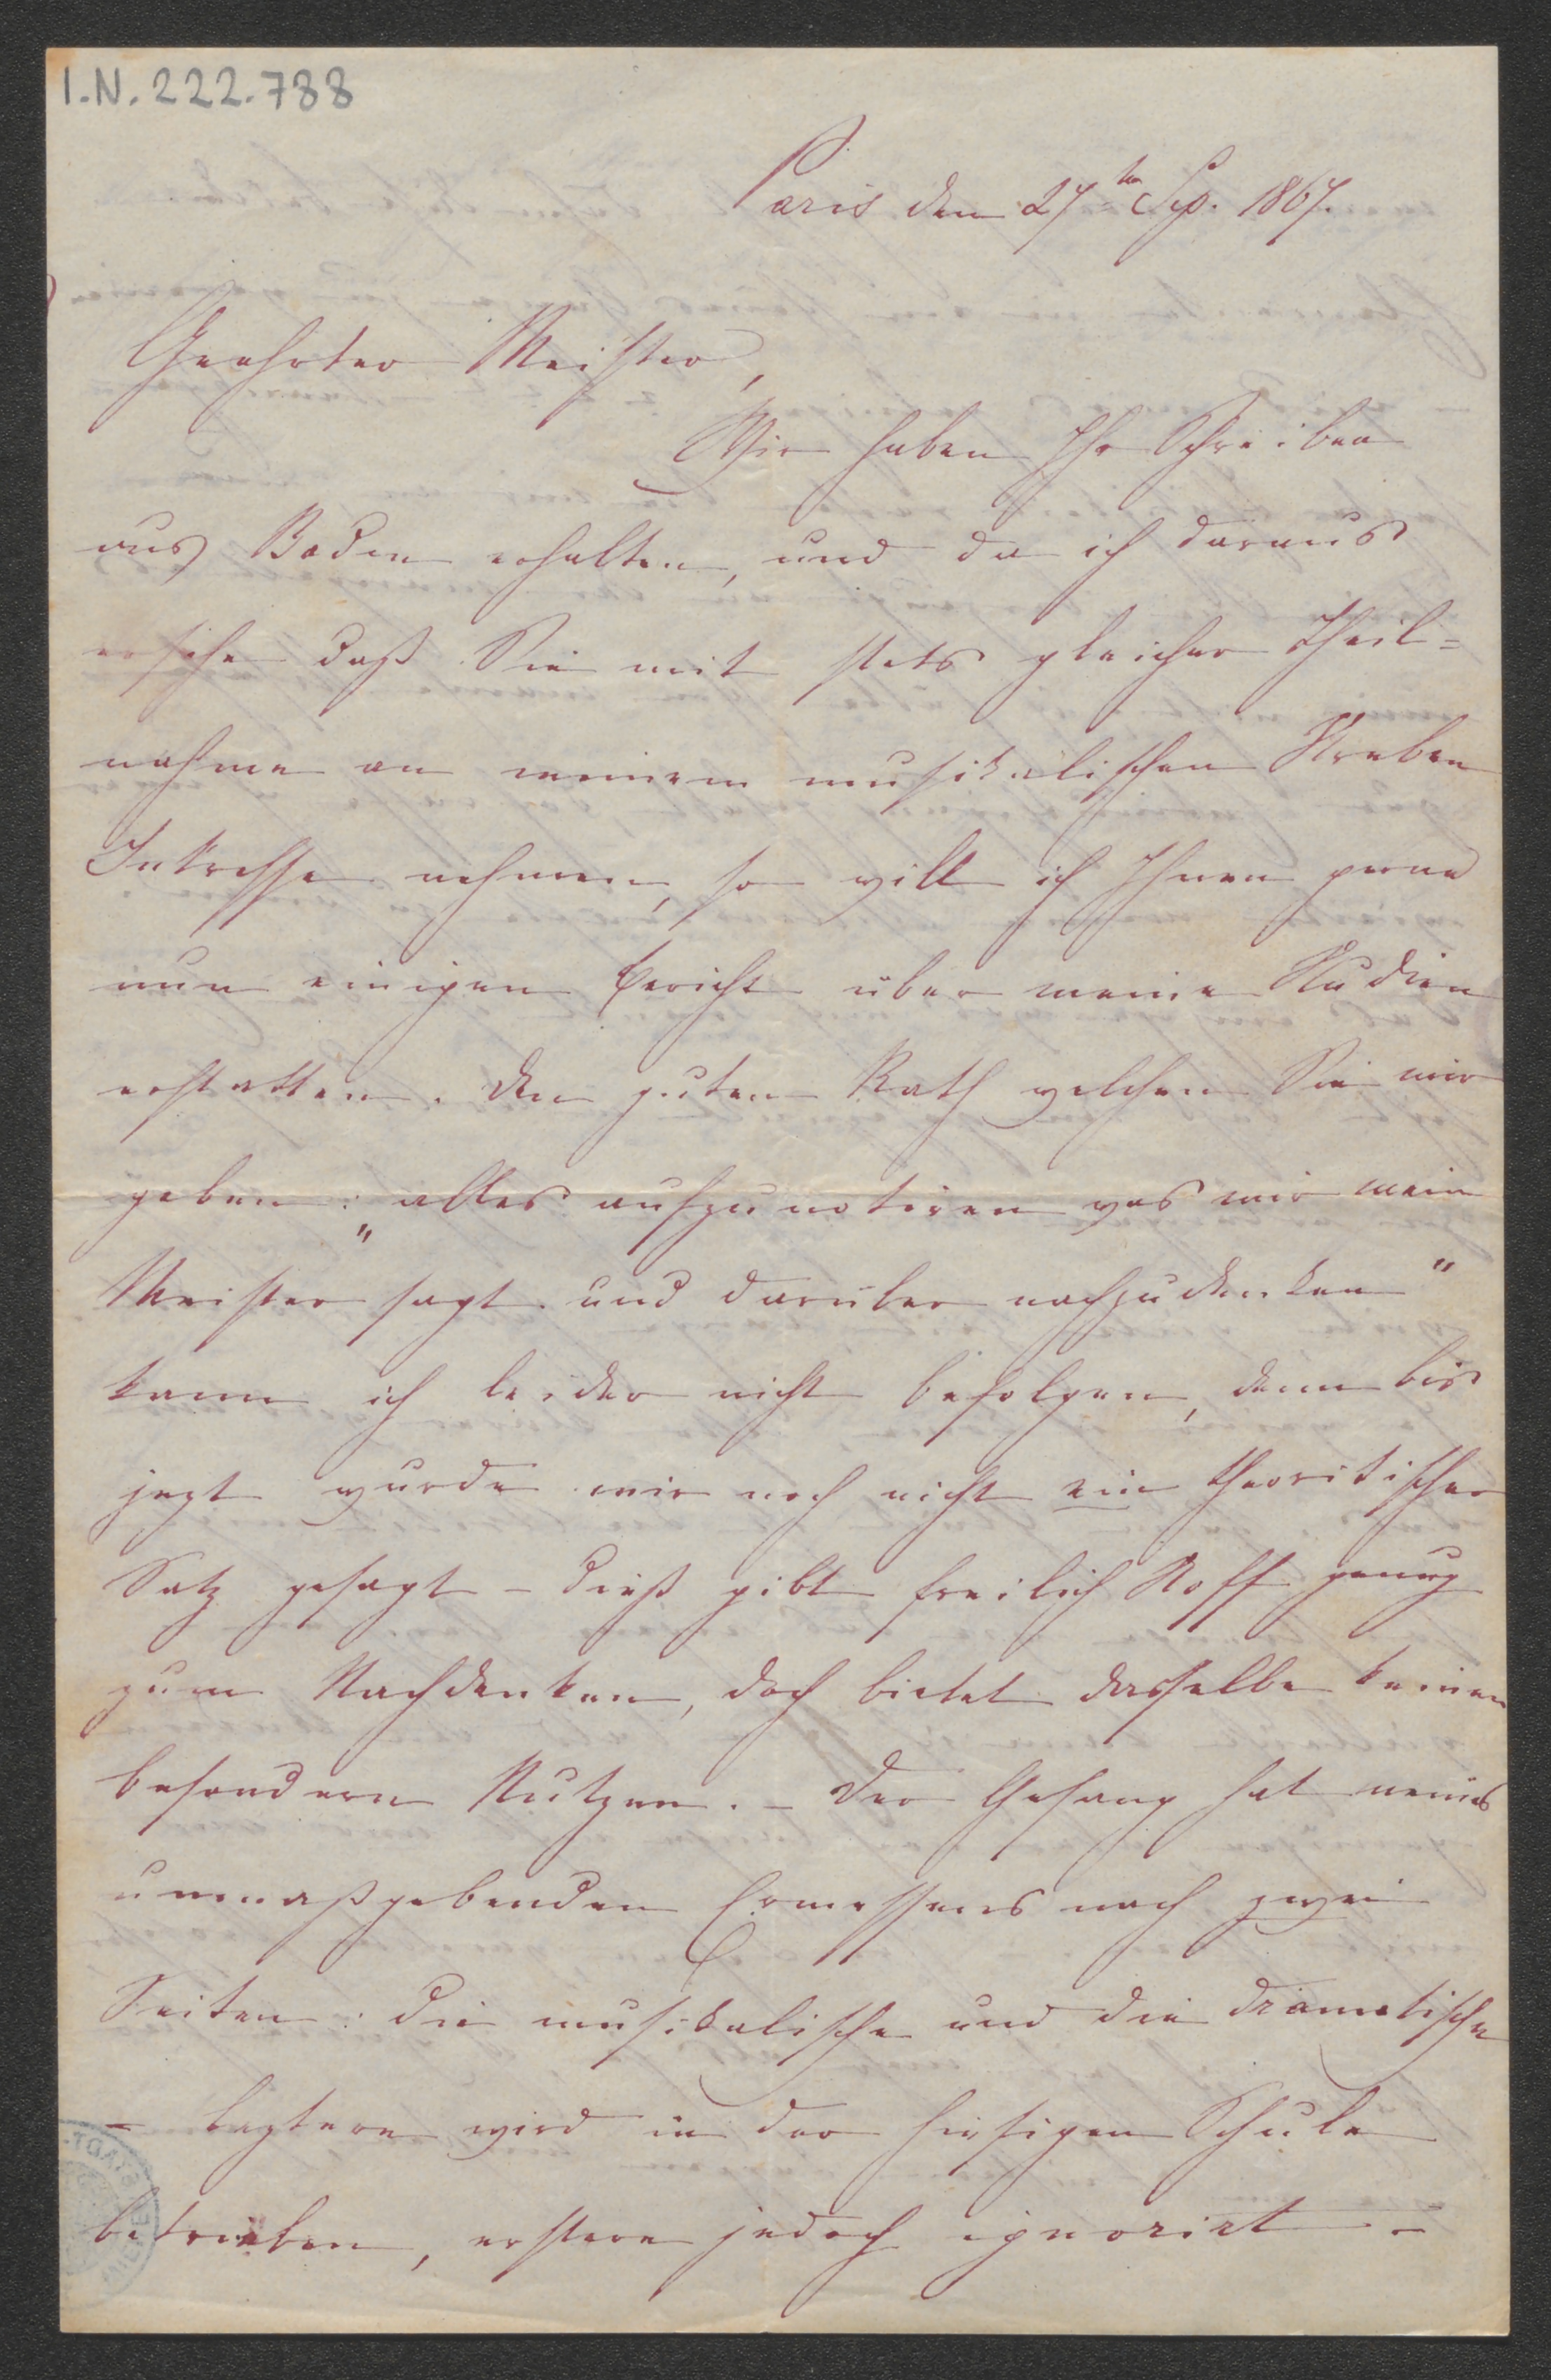 I.N. 222.788
Paris den 27ten Sep. 1867.
Geehrter Meister,
Wir haben Ihr Schreiben
aus Baden erhalten, und da ich daraus
ersehe daß Sie mit stets gleicher Theil=
nahme an meinem musikalischen Streben
Interesse nehmen, so will ich Ihnen gerne
nun einigen Bericht über meine Studien
erstatten. Den guten Rath welchen Sie mir
geben: „alles aufzunotiren was mir mein
Meister sagt und darüber nachzudenken“
kann ich leider nicht befolgen, denn bis
jezt wurde mir noch nicht ein theoritischer
Satz gesagt – dieß gibt freilich Stoff genug
zum Nachdenken, doch bietet dasselbe keinen
besondern Nutzen. – Der Gesang hat meines
unmaßgebenden Ermessens nach zwei
Seiten: die musikalische und die dramatische
– leztere wird in der hiesigen Schule
betrieben, erstere jedoch ignorirt –